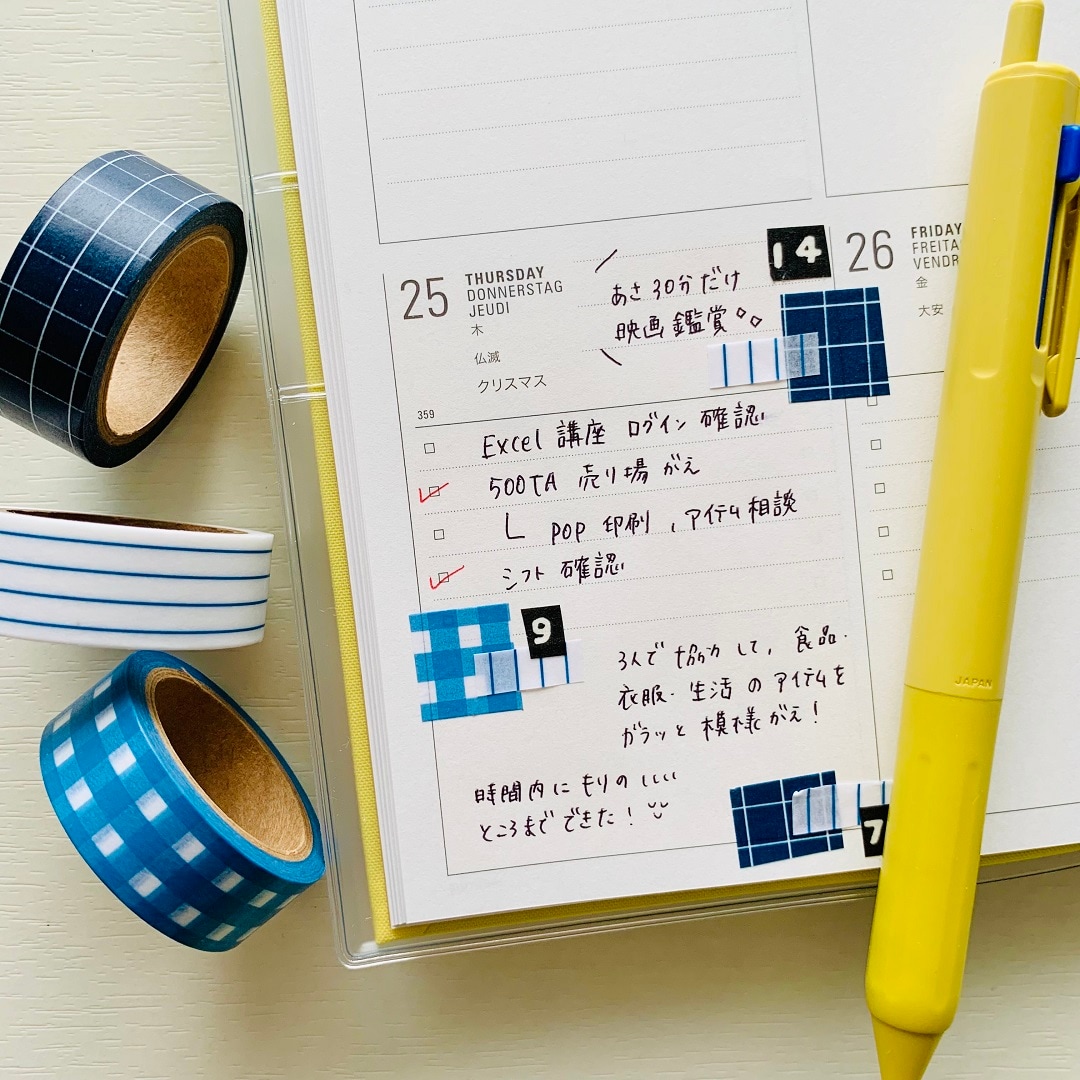 25
THURSDAY
DONNERSTAG
JEUDI
木
仏滅
クリスマス
359
あさ30分だけ
映画鑑賞
14
Excel 講座 ログイン 確認
500TA 売り場 がえ
L POP 印刷、アイテム相談
シフト 確認
9
3人で 協力 して、食品・
衣服・生活 の アイテムを
ガラッと 模様がえ!
時間内に もりの いいい
ところまで できた!
7
26
FRIDAY
FREITA
VENDR
金
大安
JAPAN